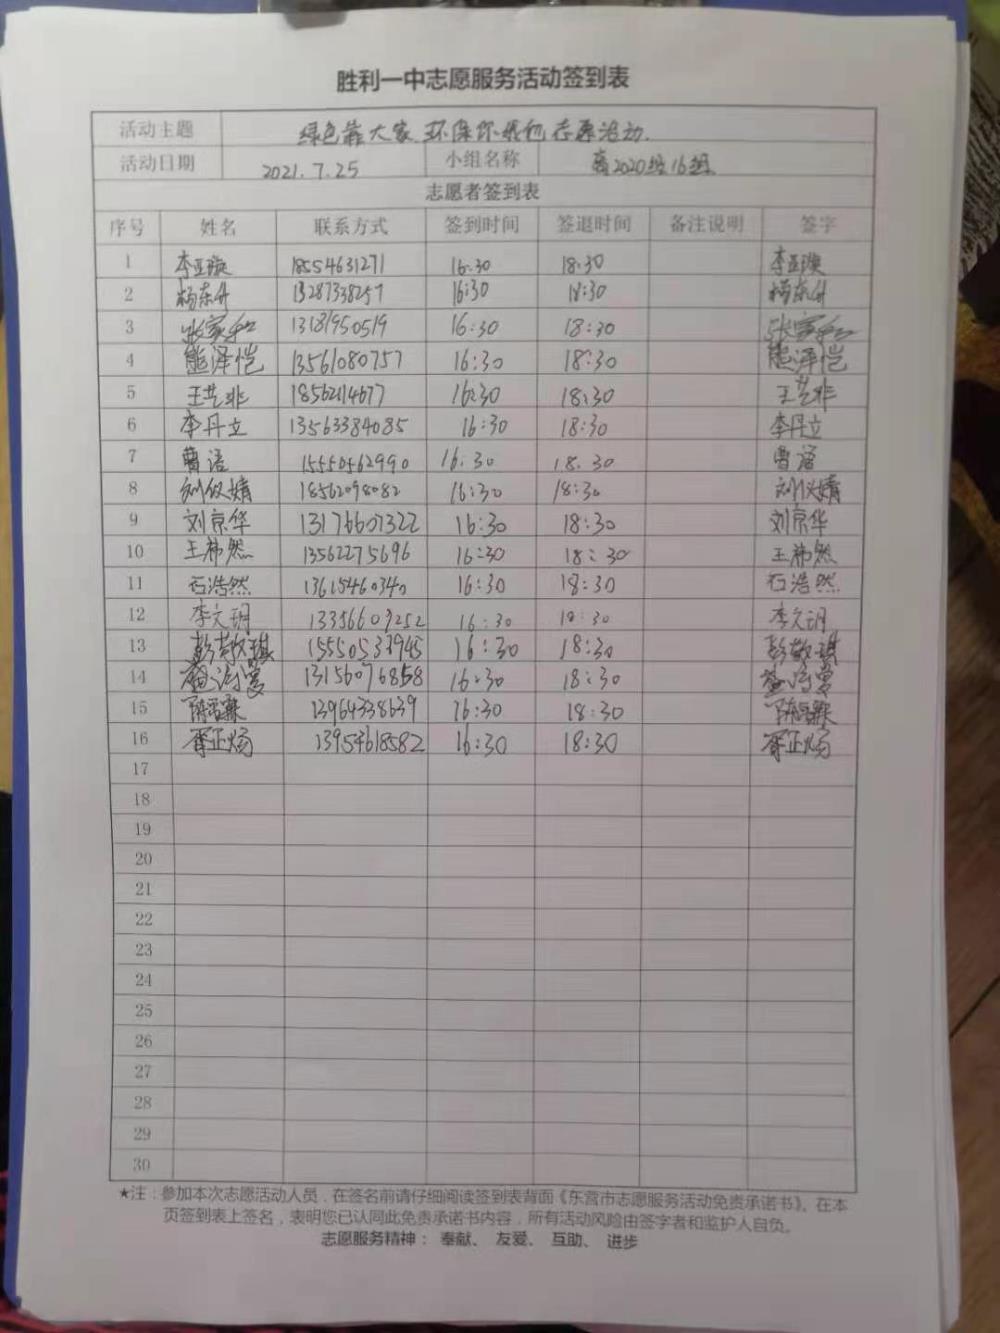 胜利一中志愿服务活动签到表
活动主题 绿色靠大家 环保你我他志愿活动.
活动日期 2021.7.25 小组名称 高2020级16组
志愿者签到表
序号 姓名 联系方式 签到时间 签退时间 备注说明 签字
1 李亚璇 18554631271 16.30 18.30 李亚璇
2 杨东升 13287338257 16:30 18:30 杨东升
3 张家和 13181950519 16:30 18:30 张家和
4 熊泽恺 13561080757 16:30 18:30 熊泽恺
5 王艺非 18562114677 16:30 18:30 王艺非
6 李丹立 13563384085 16:30 18:30 李丹立
7 曹语 15550562990 16.30 18.30 曹语
8 刘仪婧 18562098082 16:30 18:30 刘仪婧
9 刘京华 13176607322 16:30 18:30 刘京华
10 王祎然 13562275696 16:30 18:30 王祎然
11 石浩然 13615460340 16:30 18:30 石浩然
12 李文玥 13356609252 16:30 18:30 李文玥
13 彭敬琪 15550533945 16:30 18:30 彭敬琪
14 13156076858 16:30 18:30
15 13964338639 16:30 18:30
16 胥正炀 13954618582 16:30 18:30 胥正炀
17
18
19
20
21
22
23
24
25
26
27
28
29
30
★注：参加本次志愿活动人员，在签名前请仔细阅读签到表背面《东营市志愿服务活动免责承诺书》。在本
页签到表上签名，表明您已认同此免责承诺书内容，所有活动风险由签字者和监护人自负。
志愿服务精神： 奉献、 友爱、 互助、 进步